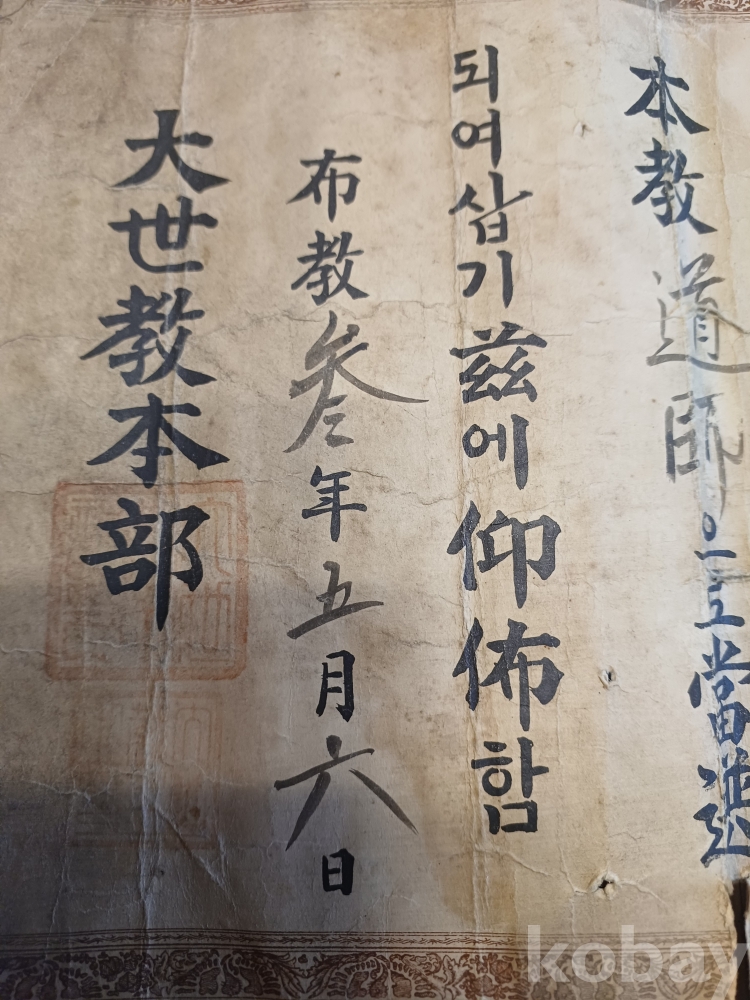 本教道師으로當選
되여삽기玆에仰佈함
布教参年五月六日
大世教本部
kobay